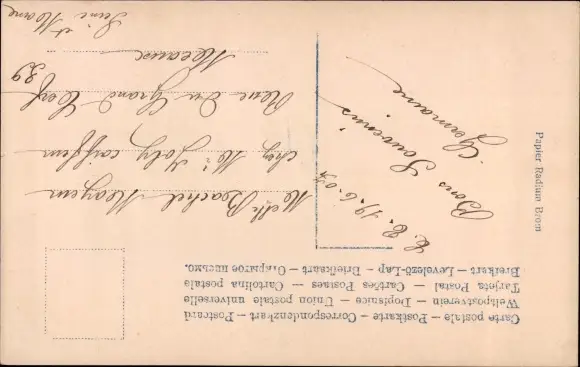 Carte postale – Postkarte – Correspondenzkart – Postcard
Weltpostverein – Dopisnice – Union postale universelle
Tarjeta Postal – Cartões Postaes – Cartolina postale
Breifkart – Levelező-Lap – Briefkaart – Открытое письмо.
Melle Rachel
chez Mr Joly coiffeur
Rue du Grand Cerf 29
Meaux
Seine et Marne
19.6.04
Bons Souvenirs
Germaine
Papier Radium Brom